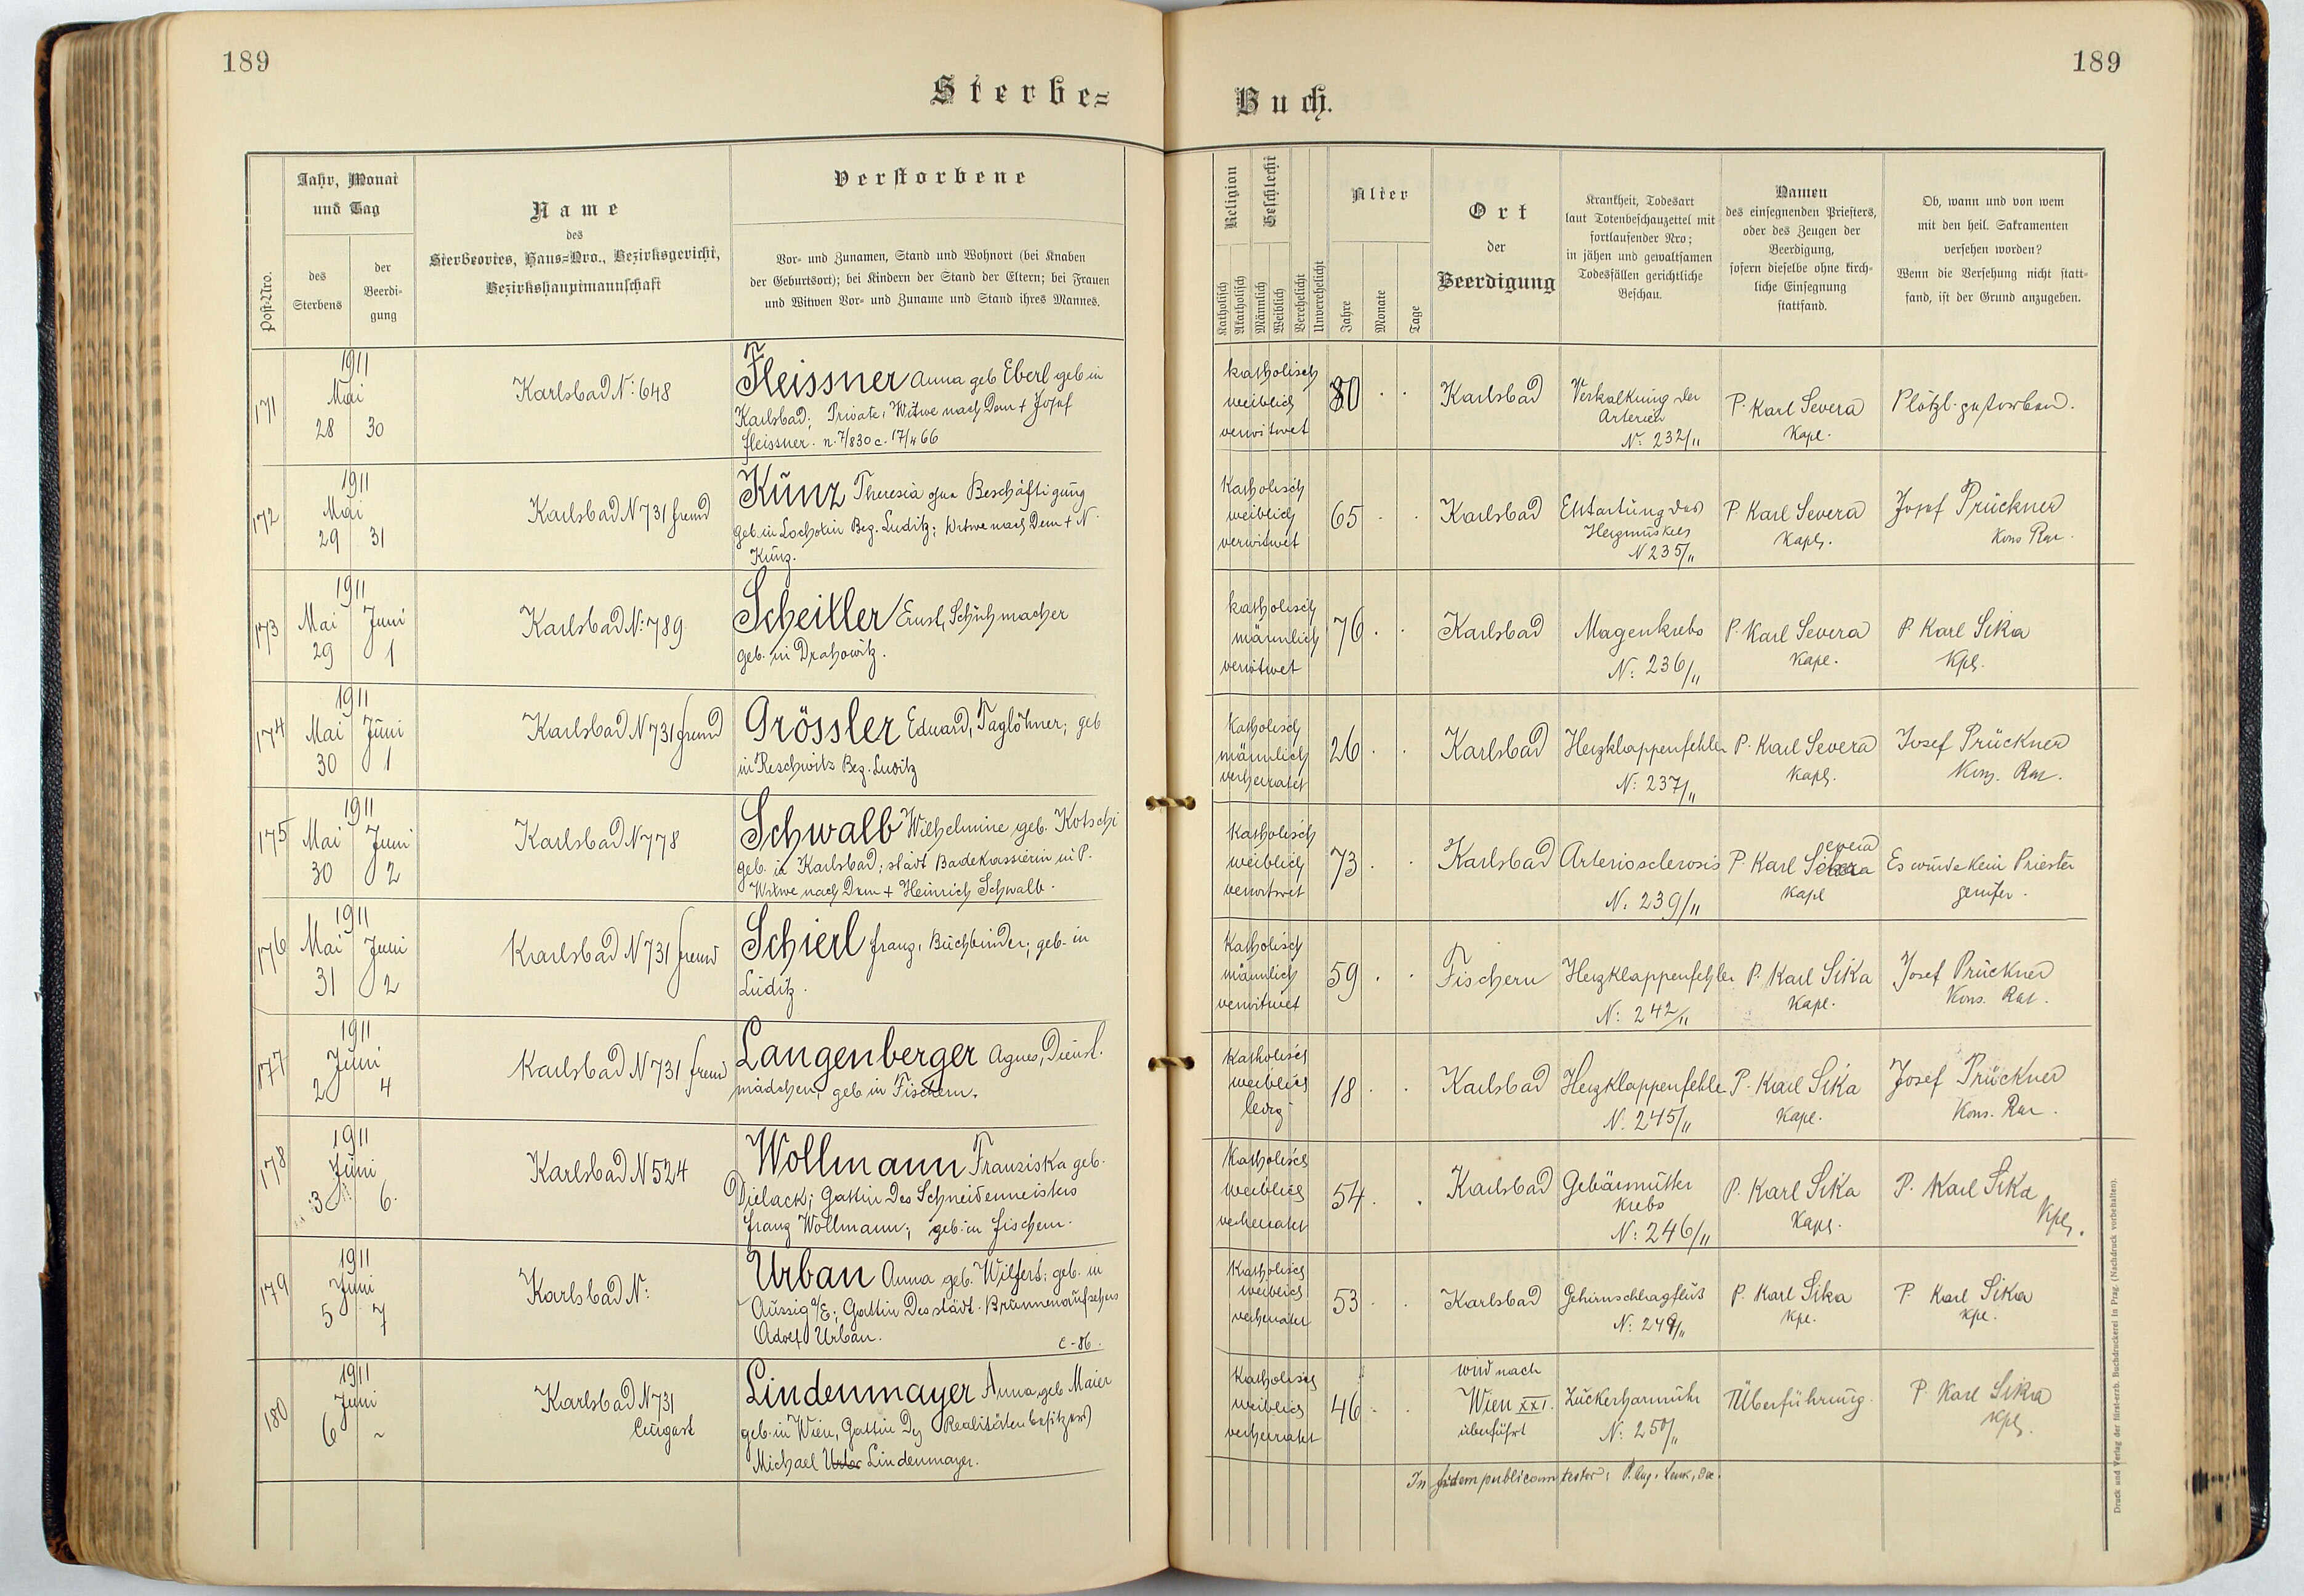 189
189
Sterbe=
Buch.
Post-Nro.
Jahr, Monat
und Tag
des
Sterbens
der
Beerdi-
gung
Name
des
Sterbeortes, Haus=Nro., Bezirksgericht,
Bezirkshauptmannschaft
Verstorbene
Vor- und Zunamen, Stand und Wohnort (bei Knaben
der Geburtsort); bei Kindern der Stand der Eltern; bei Frauen
und Witwen Vor- und Zuname und Stand ihres Mannes.
Religion
Katholisch
Akatholisch
Geschlecht
Männlich
Weiblich
Verehelicht
Unverehelicht
Alter
Jahre
Monate
Tage
Ort
der
Beerdigung
Krankheit, Todesart
laut Totenbeschauzettel mit
fortlaufender Nro;
in jähen und gewaltsamen
Todesfällen gerichtliche
Beschau.
Namen
des einsegnenden Priesters,
oder des Zeugen der
Beerdigung,
sofern dieselbe ohne kirch-
liche Einsegnung
stattfand.
Ob, wann und von wem
mit den heil. Sakramenten
versehen worden?
Wenn die Versehung nicht statt-
fand, ist der Grund anzugeben.
171
1911
Mai
28 30
Karlsbad N: 648
Fleissner Anna geb Eberl geb in
Karlsbad; Private, Witwe nach dem + Josef
Fleissner. n. 7/830 c. 17/4 66
katholisch
weiblich
verwitwet
80
Karlsbad
Verkalkung der
Arterien
N: 232/11
P. Karl Severa
Kapl.
Plötzl. gestorben.
172
1911
Mai
29 31
Karlsbad N 731 fremd
Kunz Theresia ohne Beschäftigung
geb. in Lochotin Bez. Luditz; Witwe nach dem + N
Kunz.
Katholisch
weiblich
verwitwet
65
Karlsbad
Entartung des
Herzmuskels
N 235/11
P. Karl Severa
Kapl.
Josef Prückner
Kons Rat.
173
1911
Mai Juni
29 1
Karlsbad N: 789
Scheitler Ernst, Schuhmacher
geb. in Drahowitz.
katholisch
männlich
verwitwet
76
Karlsbad
Magenkrebs
N: 236/11
P. Karl Severa
Kapl.
P. Karl Sika
Kpl.
174
1911
Mai Juni
30 1
Karlsbad N 731 fremd
Grössler Eduard, Taglöhner; geb
in Reschwitz Bez. Luditz
Katholisch
männlich
verheiratet
26
Karlsbad
Herzklappenfehler
N: 237/11
P. Karl Severa
Kapl.
Josef Prückner
Kons. Rat.
175
1911
Mai Juni
30 2
Karlsbad N 778
Schwalb Wilhelmine geb. Kotschi
geb. in Karlsbad; städt Badekassierin in P.
Witwe nach dem + Heinrich Schwalb.
Katholisch
weiblich
verwitwet
73
Karlsbad
Arteriosclerosis
N: 239/11
P. Karl Severa
Kapl
Es wurde kein Priester
gerufen.
176
1911
Mai Juni
31 2
Karlsbad N 731 fremd
Schierl Franz, Buchbinder; geb. in
Luditz.
Katholisch
männlich
verwitwet
59
Fischern
Herzklappenfehler
N: 242/11
P. Karl Sika
Kapl.
Josef Prückner
Kons. Rat.
177
1911
Juni
2 4
Karlsbad N 731 fremd
Langenberger Agnes, Dienst-
mädchen, geb in Fischern.
Katholisch
weiblich
ledig
18
Karlsbad
Herzklappenfehler
N. 245/11
P. Karl Sika
Kapl.
Josef Prückner
Kons. Rat.
178
1911
Juni
3 6.
Karlsbad N 524
Wollmann Franziska geb.
Dielack; Gattin des Schneidermeisters
Franz Wollmann; geb. in Fischern.
Katholisch
weiblich
verheiratet
54
Karlsbad
Gebärmutter
krebs
N: 246/11
P. Karl Sika
Kapl.
P. Karl Sika
Kpl.
179
1911
Juni
5 7
Karlsbad N:
Urban Anna geb. Wilfert; geb. in
Aussig a/E; Gattin des städt. Brunnenaufsehers
Adolf Urban.
c - 86.
Katholisch
weiblich
verheiratet
53
Karlsbad
Gehirnschlagfluss
N: 249/11
P. Karl Sika
Kpl.
P. Karl Sika
Kpl.
180
1911
Juni
6 ~
Karlsbad N 731
Curgast
Lindenmayer Anna geb Maier
geb. in Wien, Gattin des Realitätenbesitzers
Michael Lindenmayer.
Katholisch
weiblich
verheiratet
46
wird nach
Wien XXI.
überführt
Zuckerharnruhr
N: 250/11
Überführung.
P. Karl Sika
Kpl.
In fidem publicam testor:
Druck und Verlag der fürst-erzb. Buchdruckerei in Prag. (Nachdruck vorbehalten).